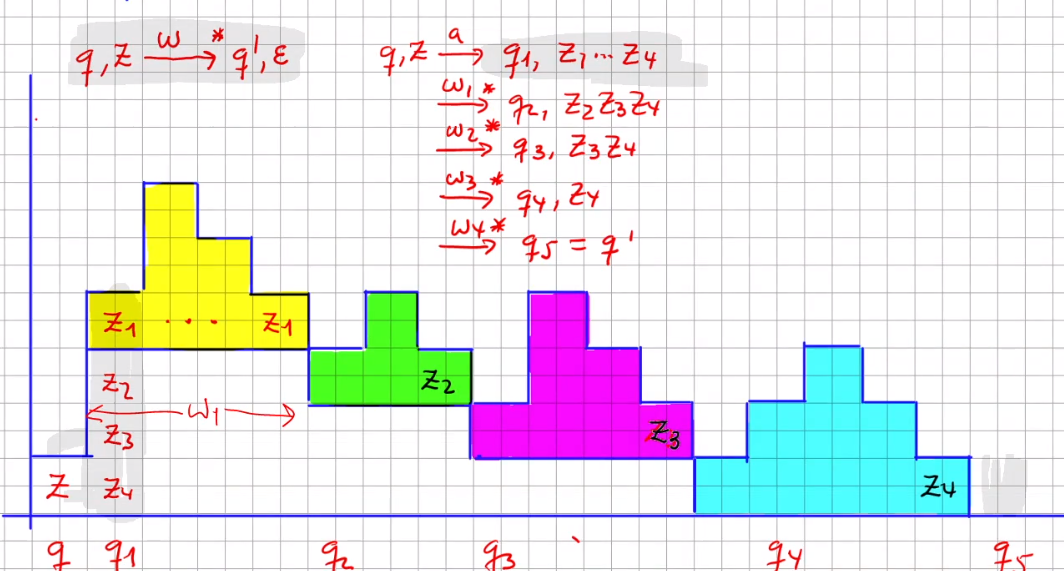 q, Z —w→* q', ε
q, Z —a→ q1, Z1 ... Z4
—w1→* q2, Z2 Z3 Z4
—w2→* q3, Z3 Z4
—w3→* q4, Z4
—w4→* q5 = q'
Z1 ... Z1
Z2
Z2
w1
Z3
Z3
Z Z4
Z4
q q1 q2 q3 q4 q5